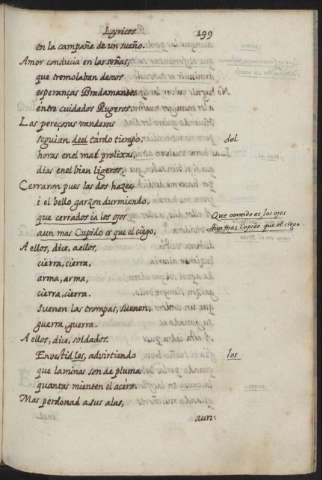 Lyricos 199
en la campaña de un sueño.
Amor conducia en las señas,
que tremolaban deseos
esperanças Bradamantes
entre cuidados Rugeros.
Las perezosas vanderas
seguian deel tardo tiempo,
del
horas en el mal prolixas,
dias en el bien ligeros.
Cerraron pues las dos hazes
i el bello garzon durmiendo,
que cerrados ia los ojos
aun mas Cupido es que el ciego,
Que cerrados los ojos
aun mas Cupido que el ciego
A ellos, dice, a ellos,
cierra, cierra,
arma, arma,
cierra, cierra.
suenen las trompas, suenen,
guerra, guerra.
A ellos, dice, soldados.
Envestid los, advirtiendo
los
que laminas son de pluma
quantas mienten el acero.
Mas perdonad a sus alas,
aun-